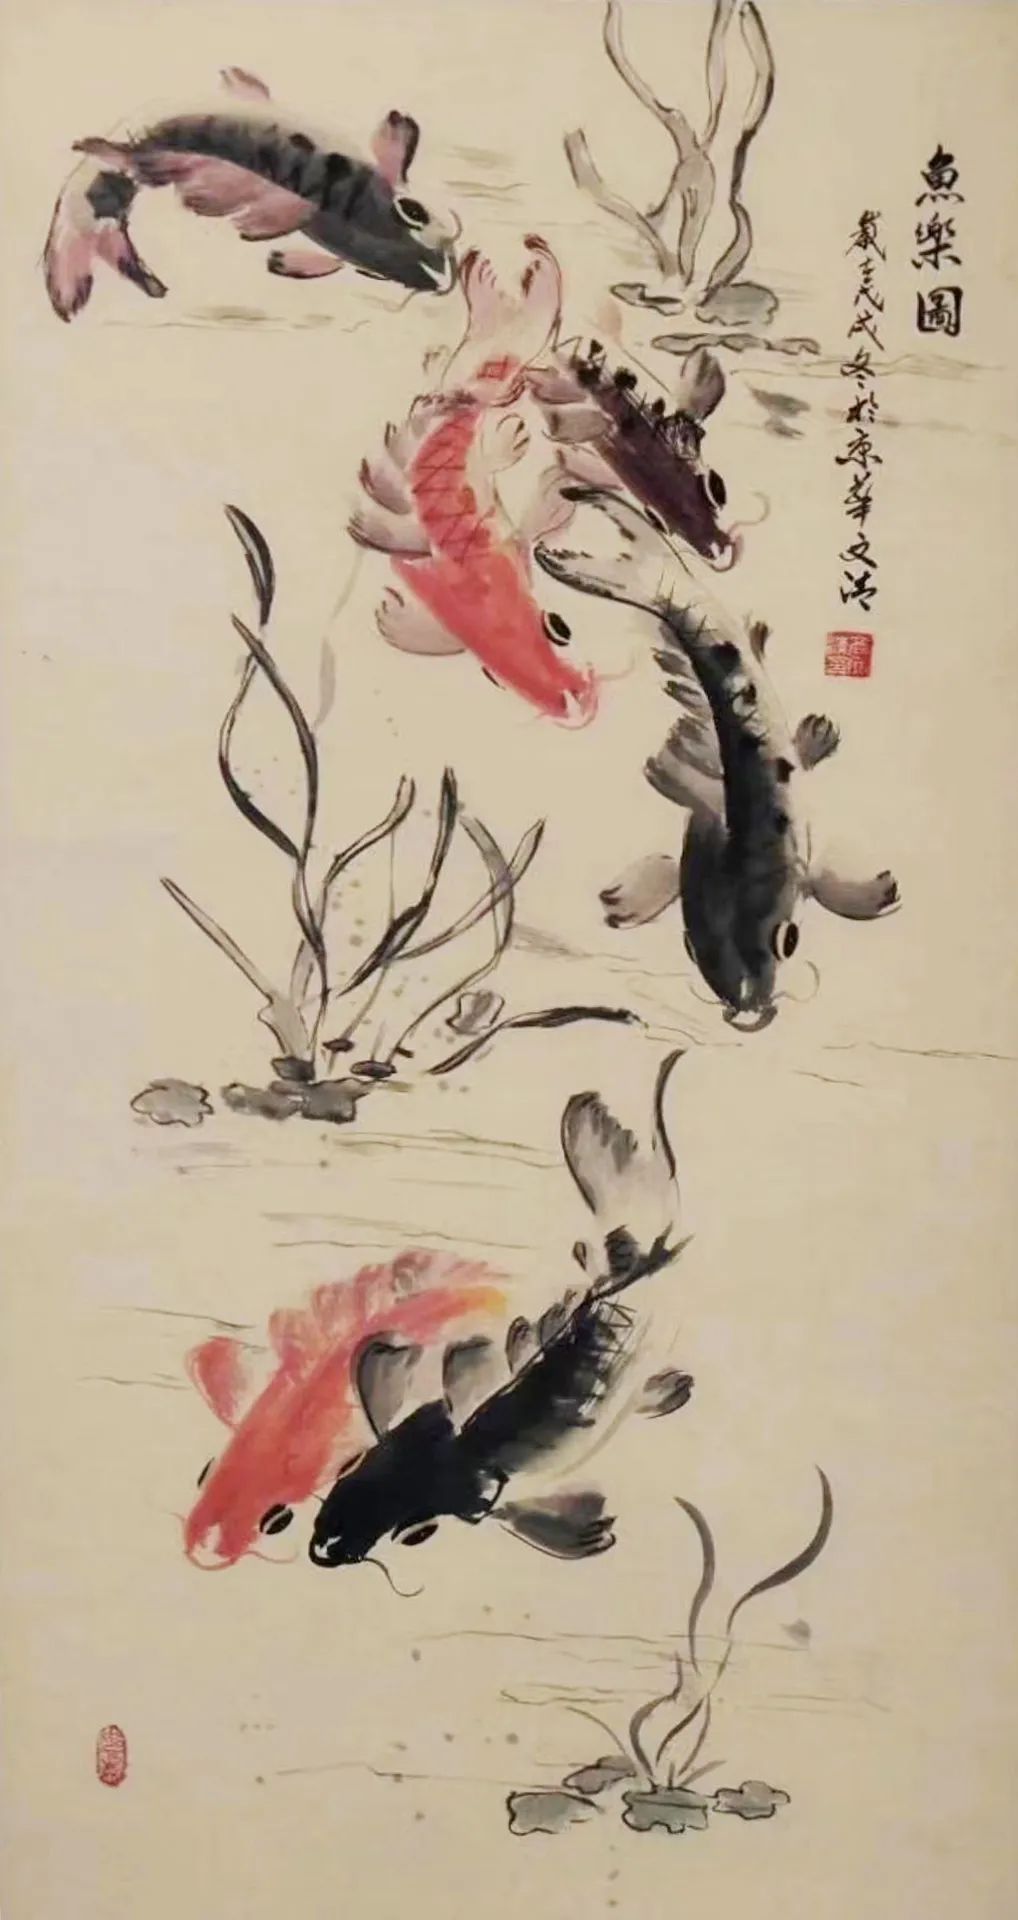 魚樂圖
歲在戊戌冬於京華文清